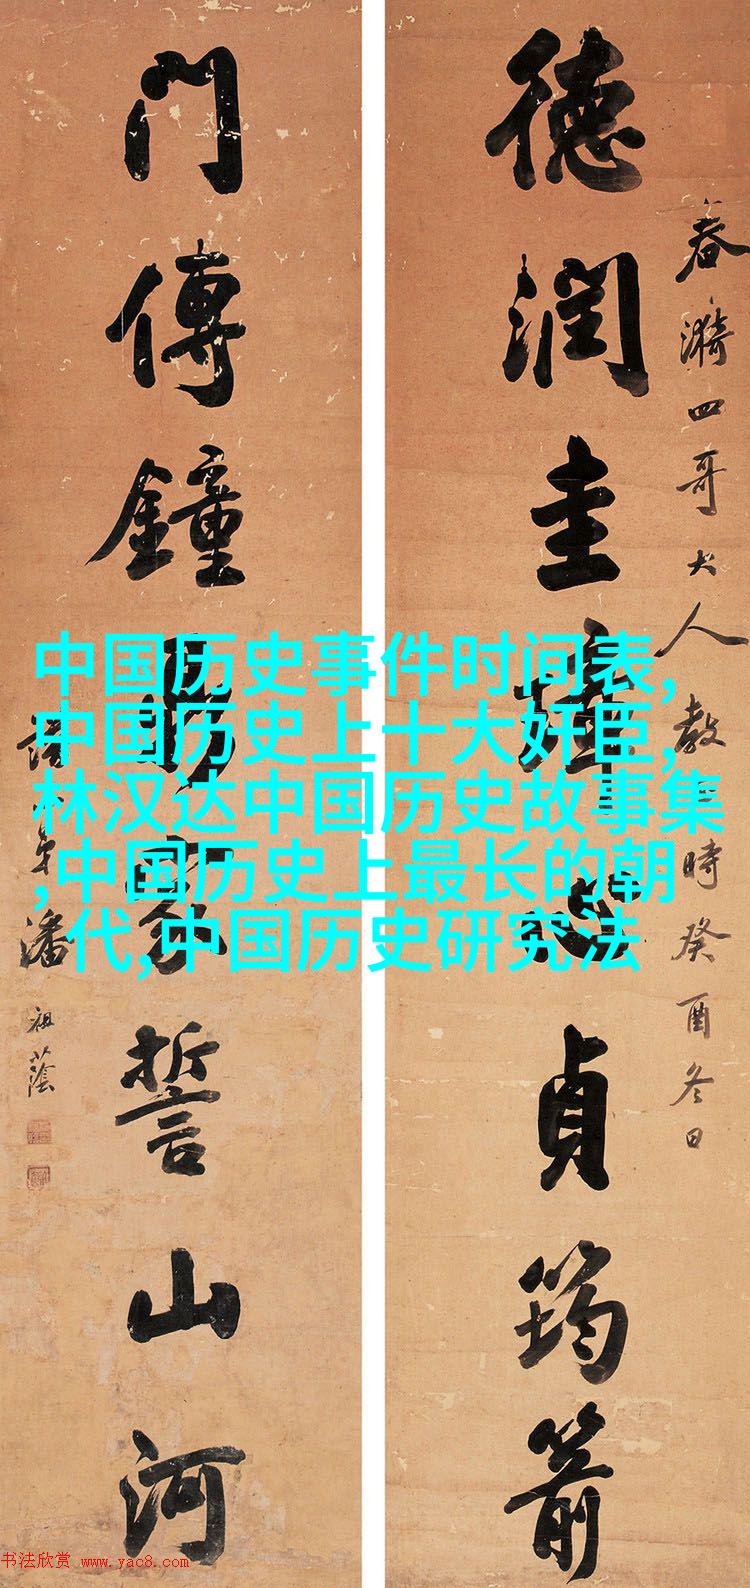 春漪四哥大人教
時癸酉冬日
德潤圭璋心貞筠箭
門傳鐘鼎家誓山河
弟潘祖蔭
中国历史事件时间表,
中国历史上十大奸臣,
林汉达中国历史故事集
,中国历史上最长的朝
代,中国历史研究法
书法欣赏 www.yac8.com